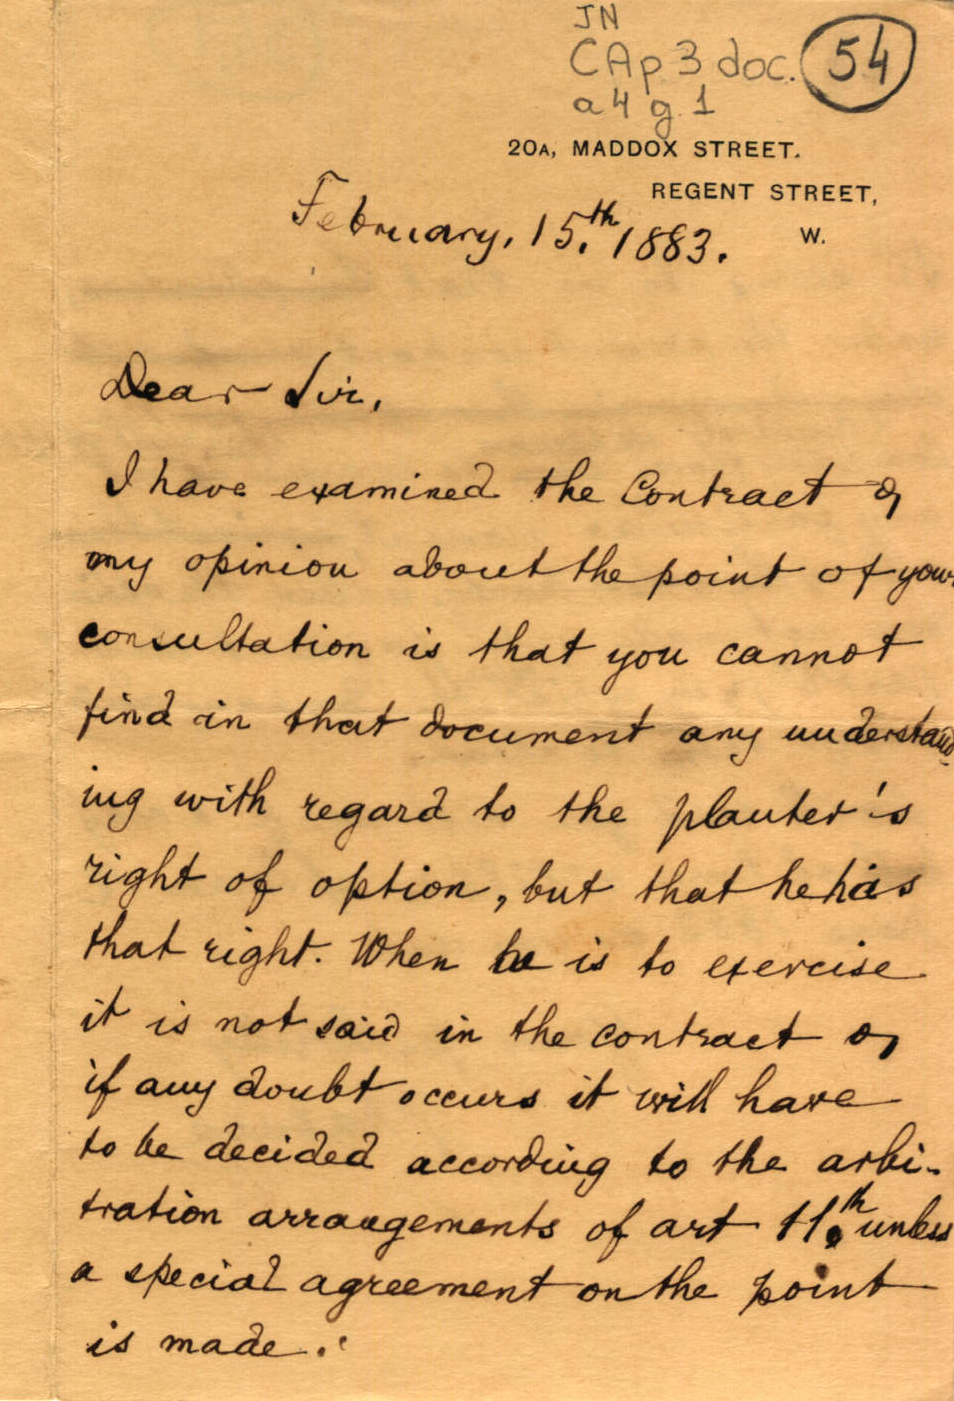 JN
CAp 3 doc. 54
a4 g 1
20A, MADDOX STREET.
REGENT STREET,
W.
February, 15.th 1883.
Dear Sir,
I have examined the Contract &
my opinion about the point of your
consultation is that you cannot
find in that document any understand
ing with regard to the planter's
right of option, but that he has
that right. When he is to exercise
it is not said in the contract &
if any doubt occurs it will have
to be decided according to the arbi-
tration arrangements of art 11.th unless
a special agreement on the point
is made.